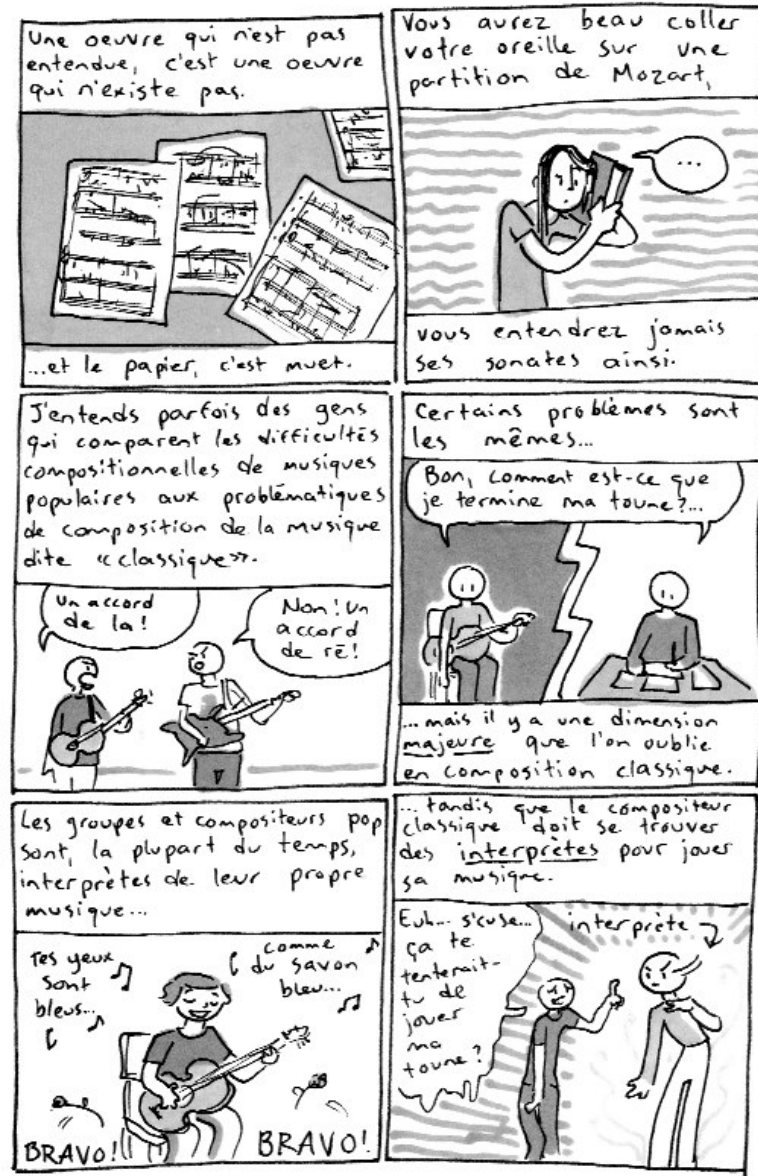 Une oeuvre qui n'est pas
entendue, c'est une oeuvre
qui n'existe pas.
...et le papier, c'est muet.
Vous aurez beau coller
votre oreille sur une
partition de Mozart,
...
vous entendrez jamais
ses sonates ainsi.
J'entends parfois des gens
qui comparent les difficultés
compositionnelles de musiques
populaires aux problématiques
de composition de la musique
dite «classique».
Un accord
de la!
Non! Un
accord
de ré!
Certains problèmes sont
les mêmes...
Bon, comment est-ce que
je termine ma toune?...
...mais il y a une dimension
majeure que l'on oublie
en composition classique.
Les groupes et compositeurs pop
sont, la plupart du temps,
interprètes de leur propre
musique...
Tes yeux
sont
bleus...
comme
du savon
bleu...
BRAVO!
BRAVO!
...tandis que le compositeur
classique doit se trouver
des interprètes pour jouer
sa musique.
Euh... s'cuse...
ça te
tenterait-
tu de
jouer
ma
toune?
interprète